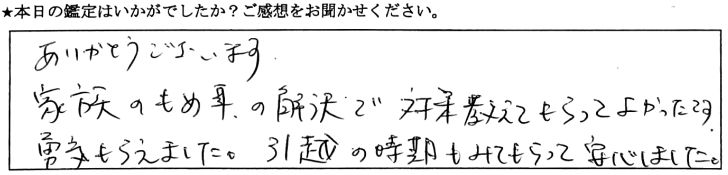 ★本日の鑑定はいかがでしたか？ご感想をお聞かせください。
ありがとうございます
家族のもめ事の解決で対策教えてもらってよかったです
勇気もらえました。引越の時期もみてもらって安心しました。